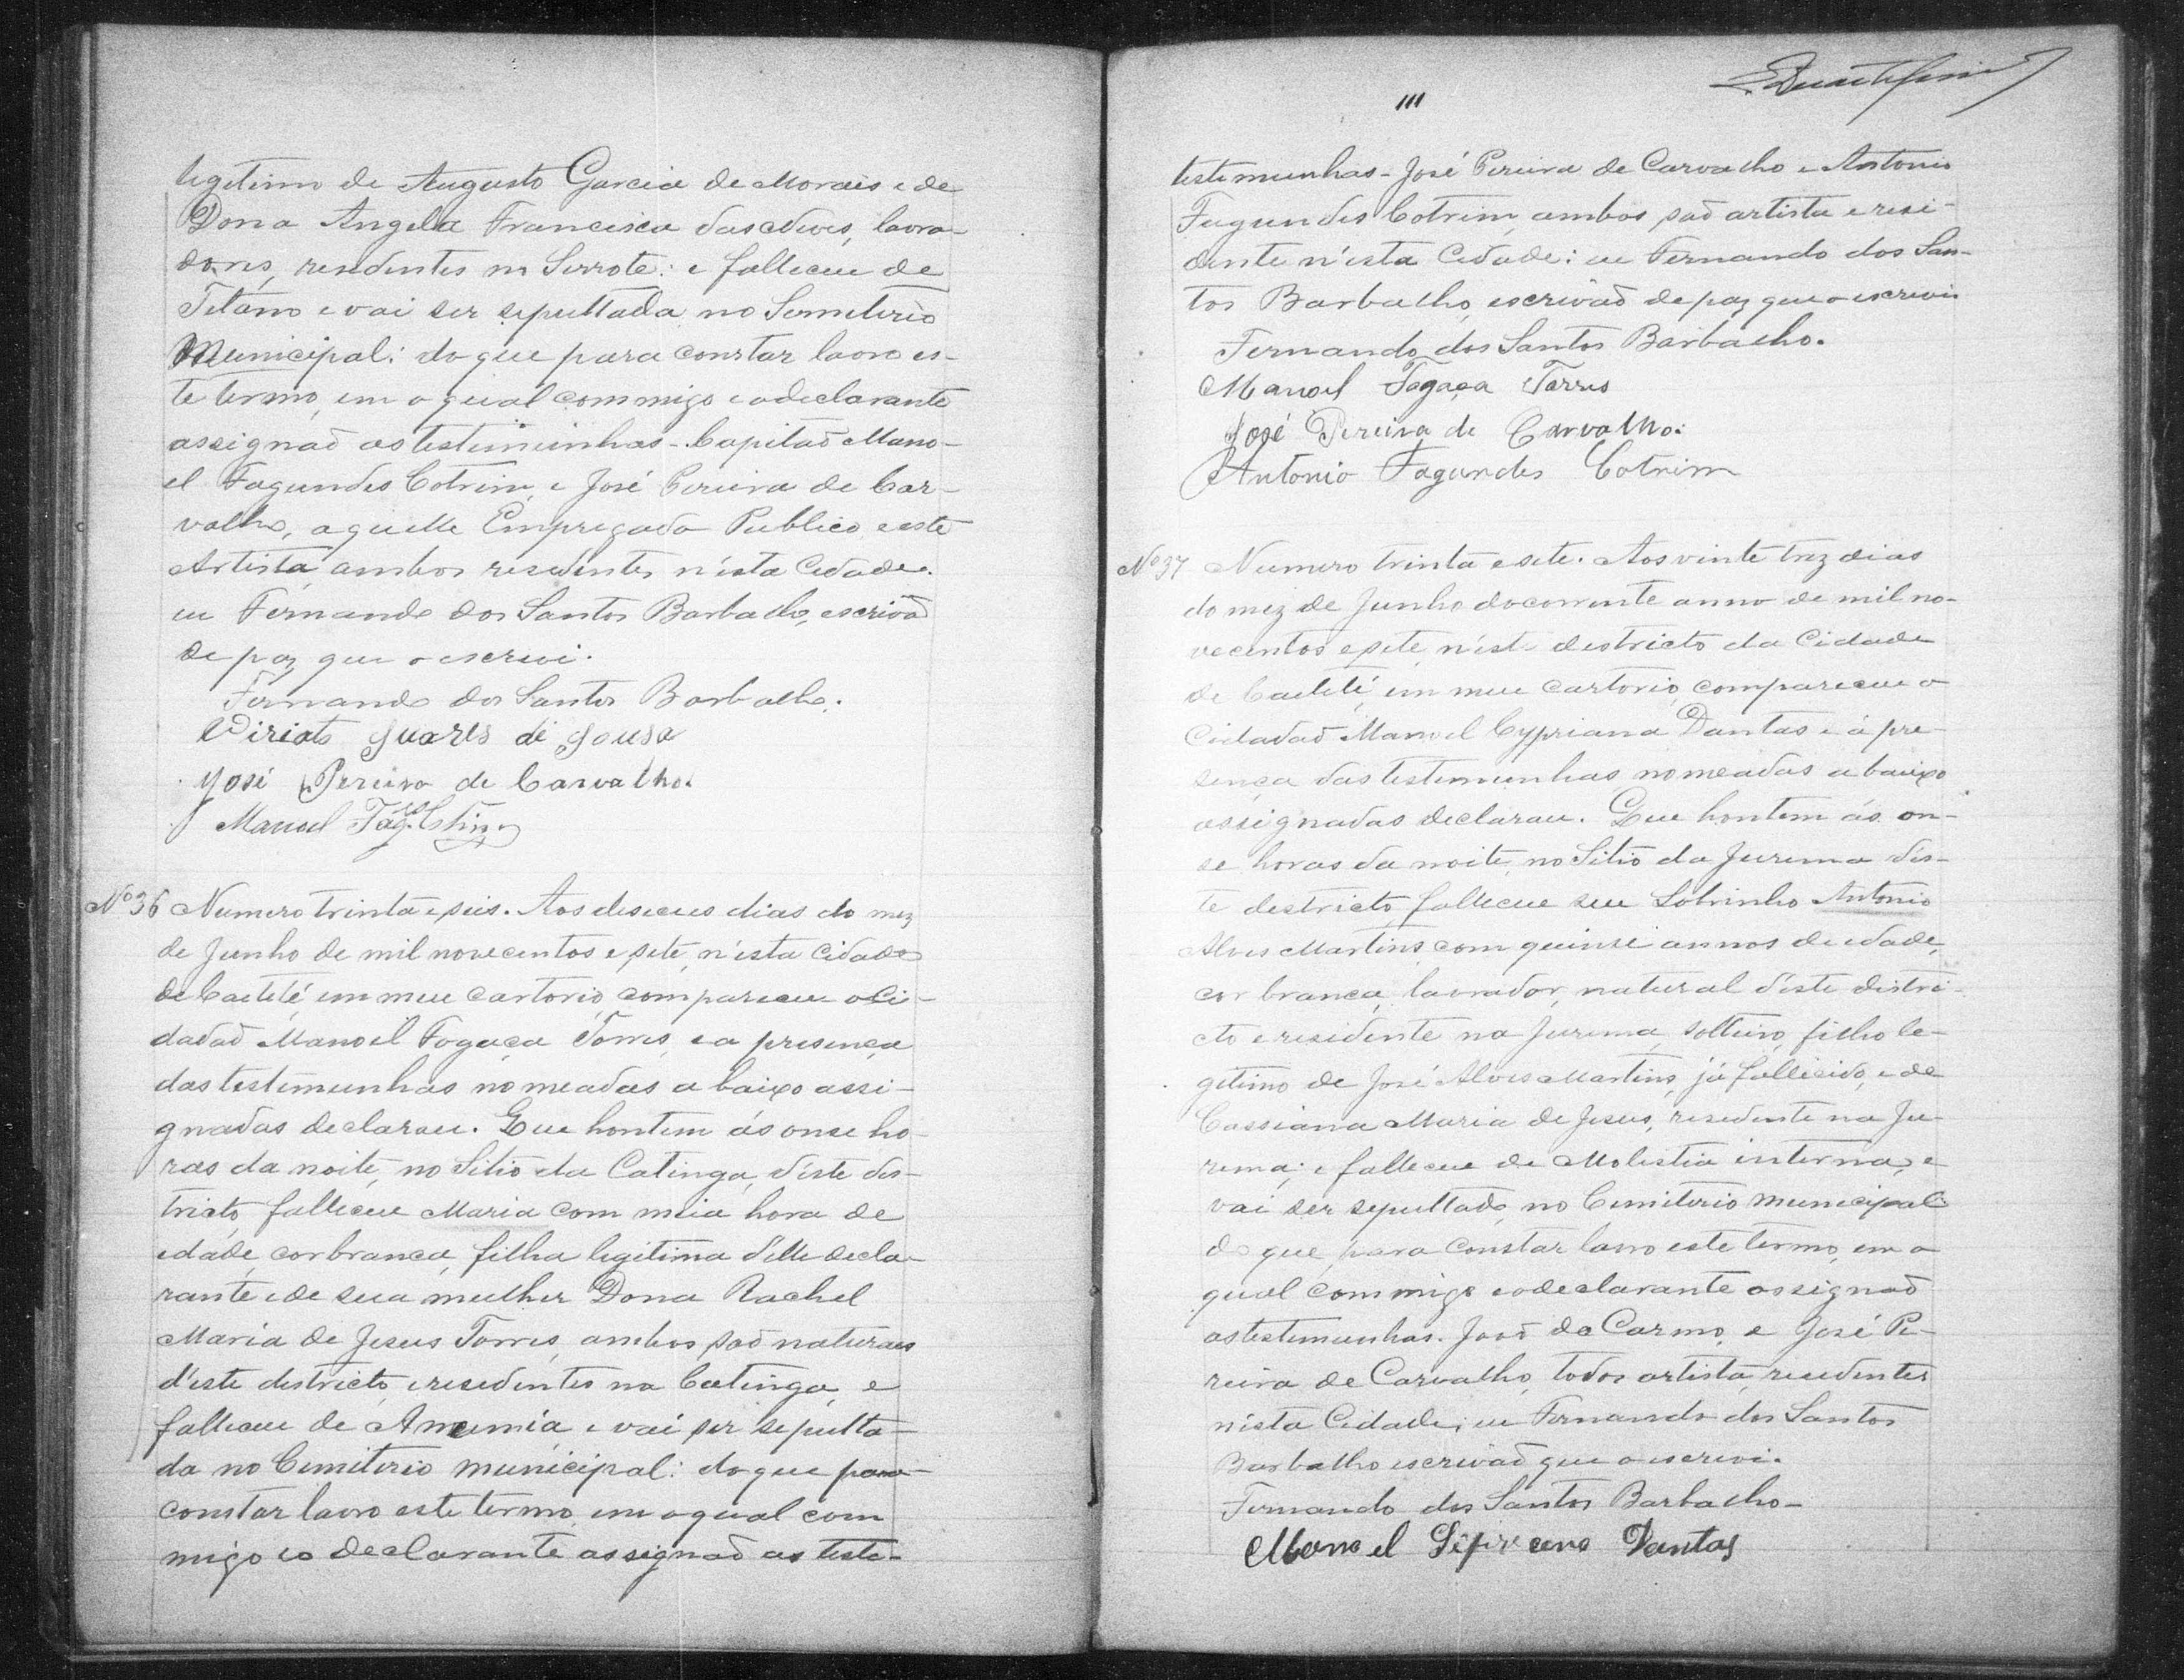 legitimo de Augusto Garcia de Morais e de
Dona Angela Francisca das Neves, lavra-
dores, residentes no Serrote: e falleceu de
Tetano e vai ser sepultada no Semiterio
Municipal: do que para constar lavro es-
te termo, em o qual commigo e o declarante
assignaõ as testimunhas - Capitaõ Mano-
el Fagundes Cotrim, e José Pereira de Car-
valho, aquelle Empregado Publico e este
Artista, ambos residentes n'esta Cidade.
eu Fernando dos Santos Barbalho, escrivaõ
de paz que o escrevi.
Fernando dos Santos Barbalho.
Viriato Suares de Sousa
José Pereira de Carvalho.
Manoel Fag.des
Nº 36 Numero trinta e seis. Aos deseceis dias do mez
de Junho de mil novecentos e sete, n'esta Cidade
de Caeteté, em meu cartorio, compareceu o Ci-
dadaõ Manoel Fogaça Torres, e a presença
das testemunhas nomeadas a baixo assi-
gnadas declarou. Que hontem ás onse ho-
ras da noite, no Sitio da Catinga, d'este dis-
tricto, falleceu Maria com meia hora de
edade, cor branca, filha legitima d'elle decla-
rante e de sua mulher Dona Rachel
Maria de Jesus Torres, ambos saõ naturaes
d'este districto, e residentes na Catinga, e
falleceu de Anemia, e vai ser sepulta-
da no Cemiterio municipal: do que para
constar lavro este termo, em o qual com
migo e o declarante assignaõ as teste-
111
testemunhas - José Pereira de Carvalho e Antonio
Fagundes Cotrim, ambos saõ artista e resi-
dente n'esta Cidade: eu Fernando dos San-
tos Barbalho, escrivaõ de paz que o escrevi
Fernando dos Santos Barbalho.
Manoel Fogaça Torres
José Pereira de Carvalho.
Antonio Fagundes Cotrim
Nº 37 Numero trinta e sete. Aos vinte trez dias
do mez de Junho do corrente anno de mil no-
vecentos e sete, n'este districto da Cidade
de Caeteté, em meu cartorio, compareceu o
Cidadaõ Manoel Cypriana Dantas e á pre-
sença das testemunhas nomeadas a baixo
assignadas declarou. Que hontem ás on-
se horas da noite, no Sitio da Jurema des-
te destricto, falleceu seu Sobrinho Antonio
Alves Martins, com quinse annos de edade,
cor branca, lavrador, natural d'este distri-
cto e residente na Jurema, solteiro, filho le-
gitimo de José Alves Martins, já fallecido, e de
Cassiana Maria de Jesus, residente na Ju-
rema; e falleceu de Molestia interna, e
vai ser sepultado, no Cemiterio municipal:
do que, para constar lavro este termo, em o
qual commigo e o declarante assignaõ
as testemunhas. Joaõ do Carmo, e José Pe-
reira de Carvalho, todos artista, residentes
nésta Cidade; eu Fernando dos Santos
Barbalho escrivaõ que o escrevi.
Fernando dos Santos Barbalho-
Manoel Sipireano Dantas